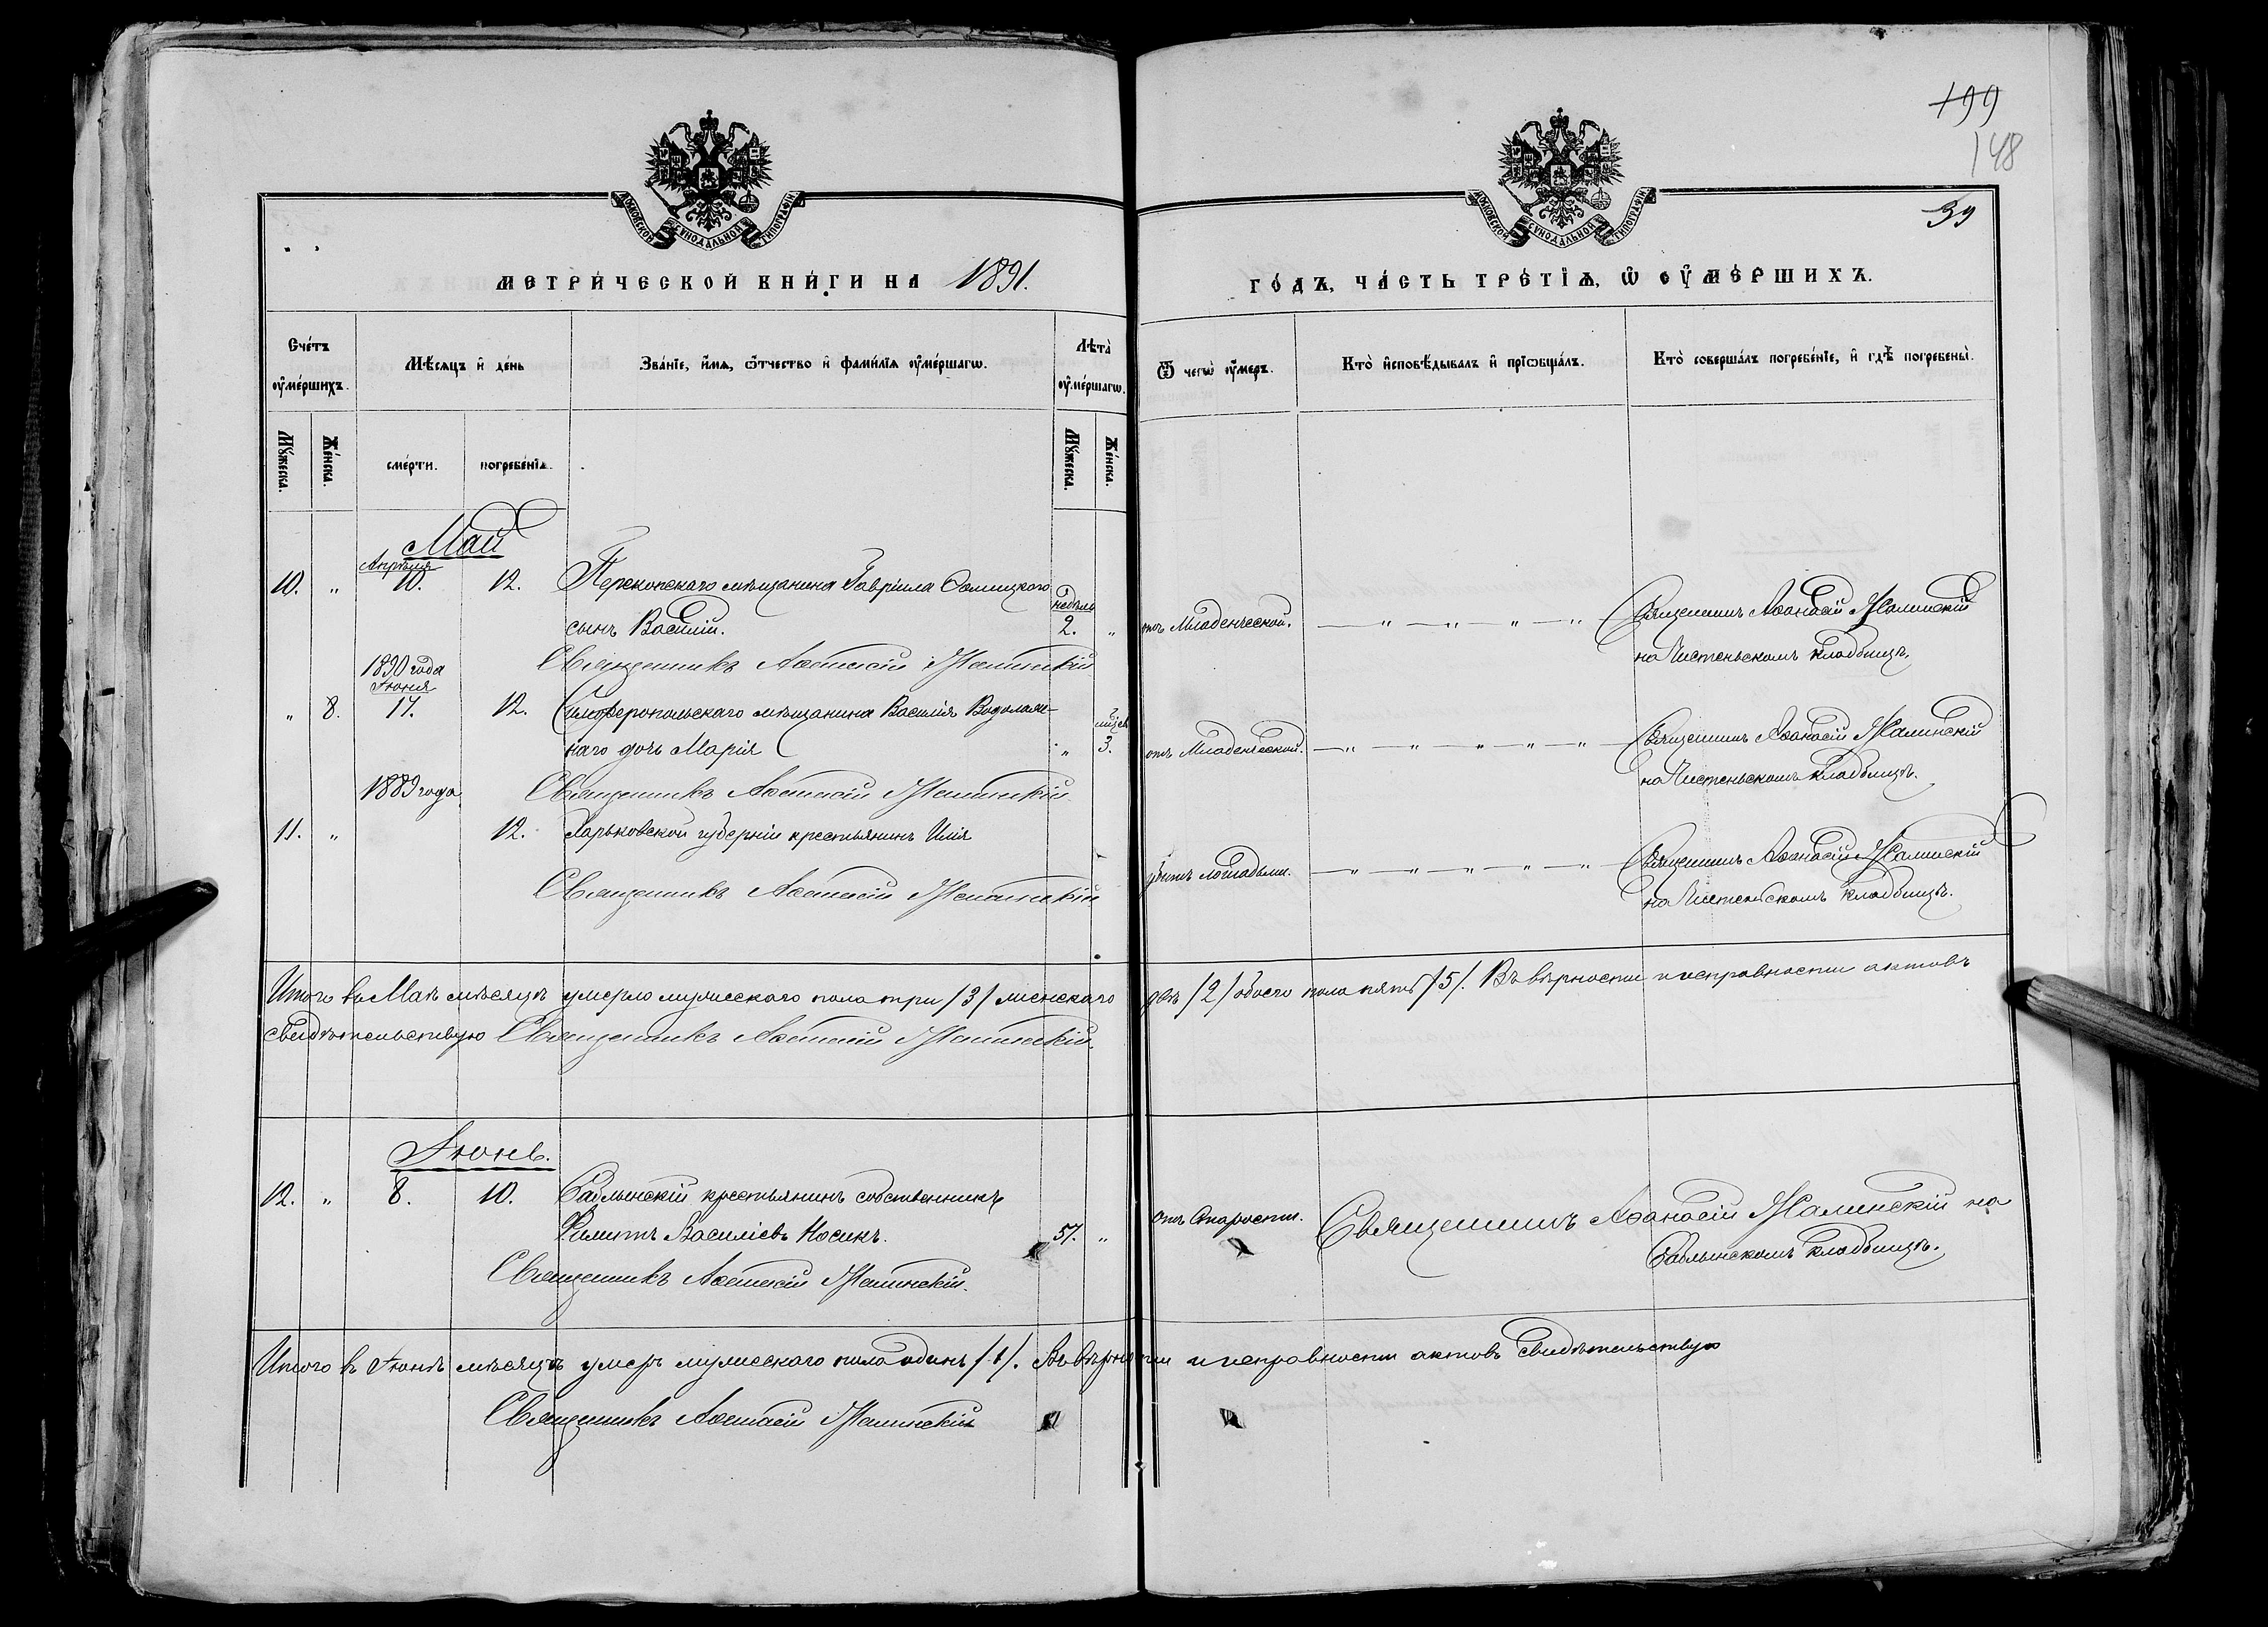 199
148
39
МОСКОВСКОЙ СѴНОДАЛЬНОЙ ТИПОГРАФІИ
МОСКОВСКОЙ СѴНОДАЛЬНОЙ ТИПОГРАФІИ
МЕТРИЧЕСКОЙ КНИГИ НА 1891.
ГОДЪ, ЧАСТЬ ТРЕТІѦ, Ѡ ОУМЕРШИХЪ.
Счетъ оумершихъ.
Мѣсяцъ и день
Званіе, имя, ѿтчество и фамилія оумершагѡ.
Лѣта оумершагѡ.
Ѿ чегѡ оумеръ.
Кто исповѣдывалъ и пріѡбщалъ.
Кто совершалъ погребеніе, и гдѣ погребены.
Мужеска.
Женска.
смерти.
погребенія.
Мужеска.
Женска.
Май
Апрѣля
10. " 10. 12. Перекопскаго мѣщанина Гавріила
недѣль
сынъ Василій. 2. " отъ Младенческой. — " — " — " — " Священникъ Аѳанасій Жалинскій
на Чистеньскомъ кладбищѣ.
1890 года
Священникъ Аѳанасій Жалинскій
Іюня
" 8. 17. 12. Симферопольскаго мѣщанина Василія Водолаж-
мѣсяц
наго дочь Марія " 3. отъ Младенческой. — " — " — " — " — " Священникъ Аѳанасій Жалинскій
на Чистеньскомъ кладбищѣ.
1889 года
Священникъ Аѳанасій Жалинскій
11. " 12. Харьковской губерніи крестьянинъ Илія
убитъ лошадьми. — " — " — " — " — " Священникъ Аѳанасій Жалинскій
на Чистеньскомъ кладбищѣ.
Священникъ Аѳанасій Жалинскій
Итого въ Маѣ мѣсяцѣ умерло мужескаго пола три /3/ женскаго двѣ /2/ обоего пола пять /5/. Въ вѣрности и исправности актовъ
свидѣтельствую Священникъ Аѳанасій Жалинскій.
Іюнь.
12. " 8. 10. Саблынскій крестьянинъ собственникъ
Филиппъ Василіевъ Носикъ. 57. " отъ Старости. Священникъ Аѳанасій Жалинскій на
Саблынскомъ кладбищѣ.
Священникъ Аѳанасій Жалинскій.
Итого въ Іюнѣ мѣсяцѣ умеръ мужескаго пола одинъ /1/. Въ вѣрности и исправности актовъ свидѣтельствую
Священникъ Аѳанасій Жалинскій